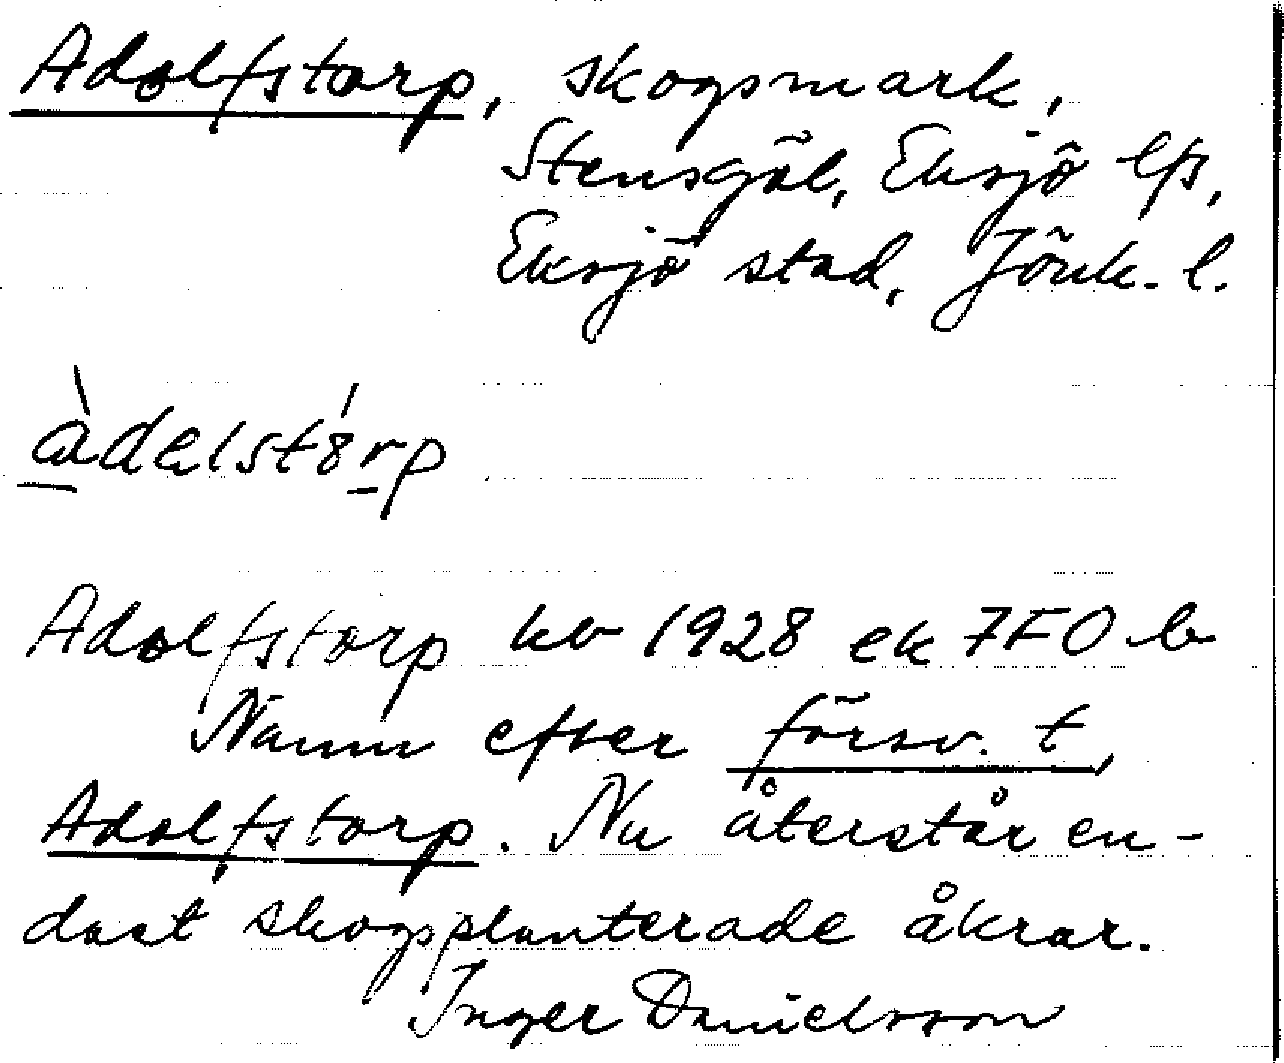 Adolfstorp, skogsmark,
Stensgöl, Eksjö lfs,
Eksjö stad, Jönk. l.
àdəlstórp
Adolfstorp kb 1928 ek 7F0 b
Namn efter försv. t,
Adolfstorp. Nu återstår en-
dast skogsplanterade åkrar.
Inger Danielsson